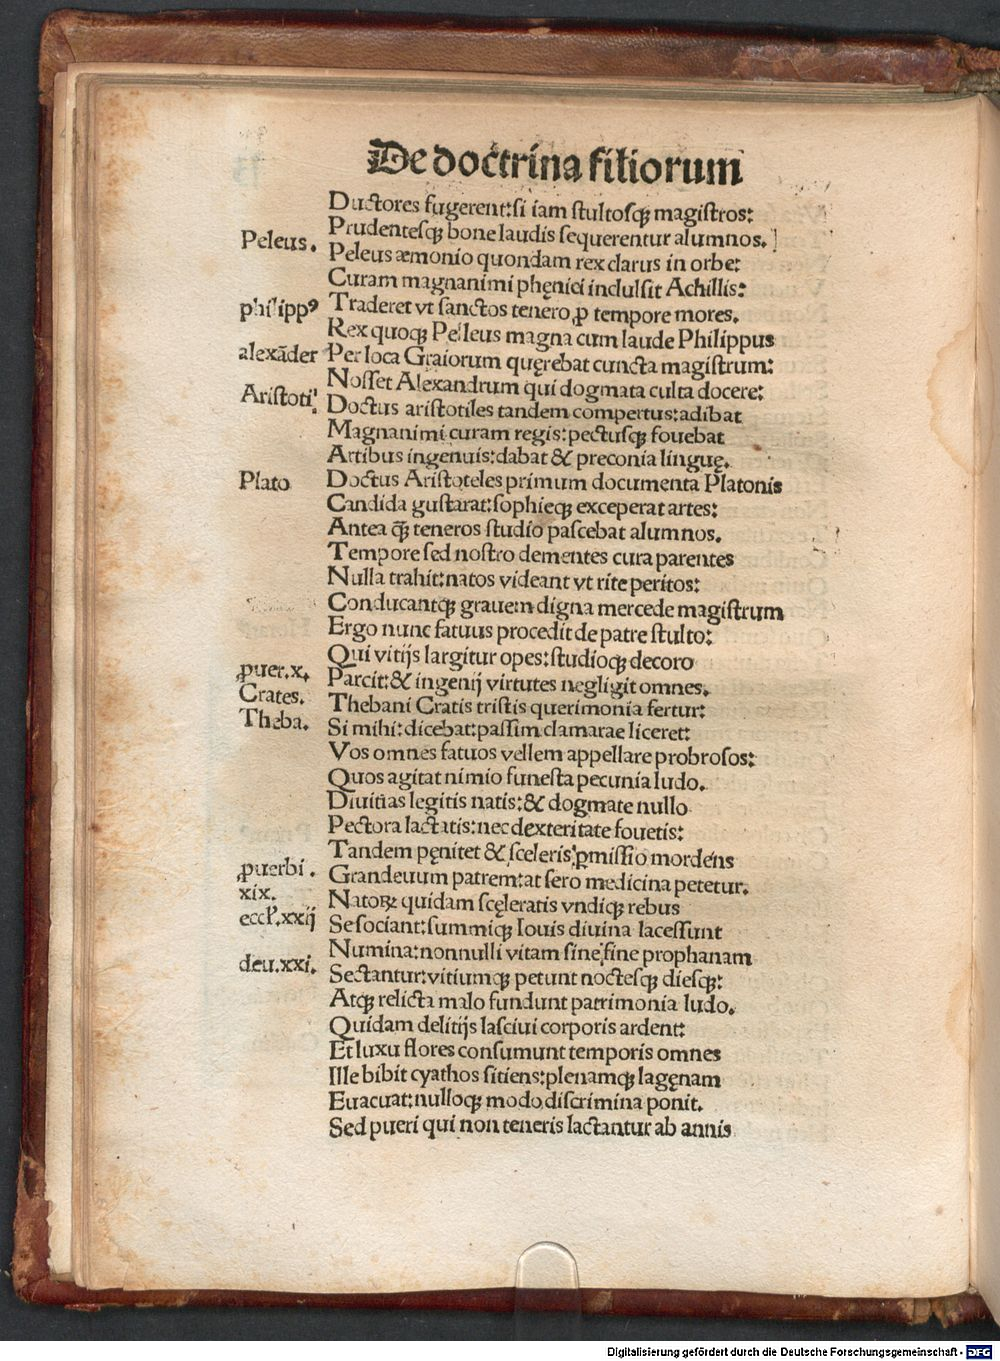 De doctrina filiorum
Ductores fugerent:si iam stultosq̃ magistros:
Prudentesq̃ bone laudis sequerentur alumnos.
Peleus.
Peleus æmonio quondam rex clarus in orbe:
Curam magnanimi phęnici indulsit Achillis:
philippꝰ
Traderet vt sanctos tenero ꝓ tempore mores.
Rex quoq̃ Pelleus magna cum laude Philippus
alexãder
Per loca Graiorum quęrebat cuncta magistrum:
Nosset Alexandrum qui dogmata culta docere:
Aristoti'.
Doctus aristotiles tandem compertus:adibat
Magnanimi curam regis:pectusq̃ fouebat
Artibus ingenuis:dabat & preconia linguę.
Plato
Doctus Aristoteles primum documenta Platonis
Candida gustarat:sophieq̃ exceperat artes:
Antea q̃ teneros studio pascebat alumnos.
Tempore sed nostro dementes cura parentes
Nulla trahit:natos videant vt rite peritos:
Conducantq̃ grauem digna mercede magistrum
Ergo nunc fatuus procedit de patre stulto:
Qui vitijs largitur opes:studioq̃ decoro
ꝓuer.x.
Parcit:& ingenij virtutes negligit omnes.
Crates.
Thebani Cratis tristis querimonia fertur:
Theba.
Si mihi:dicebat:passim clamarae liceret:
Vos omnes fatuos vellem appellare probrosos:
Quos agitat nimio funesta pecunia ludo.
Diuitias legitis natis:& dogmate nullo
Pectora lactatis:nec dexteritate fouetis:
Tandem pęnitet & sceleris ꝓmissio mordens
ꝓuerbi.
Grandeuum patrem:at sero medicina petetur.
xix.
Natoꝝ quidam scęleratis vndiq̃ rebus
eccl'.xxij
Se sociant:summiq̃ Iouis diuina lacessunt
Numina:nonnulli vitam sine fine prophanam
deu.xxi.
Sectantur:vitiumq̃ petunt noctesq̃ diesq̃:
Atq̃ relicta malo fundunt patrimonia ludo.
Quidam delitijs lasciui corporis ardent:
Et luxu flores consumunt temporis omnes
Ille bibit cyathos sitiens:plenamq̃ lagęnam
Euacuat:nulloq̃ modo discrimina ponit.
Sed pueri qui non teneris lactantur ab annis
Digitalisierung gefördert durch die Deutsche Forschungsgemeinschaft - DFG